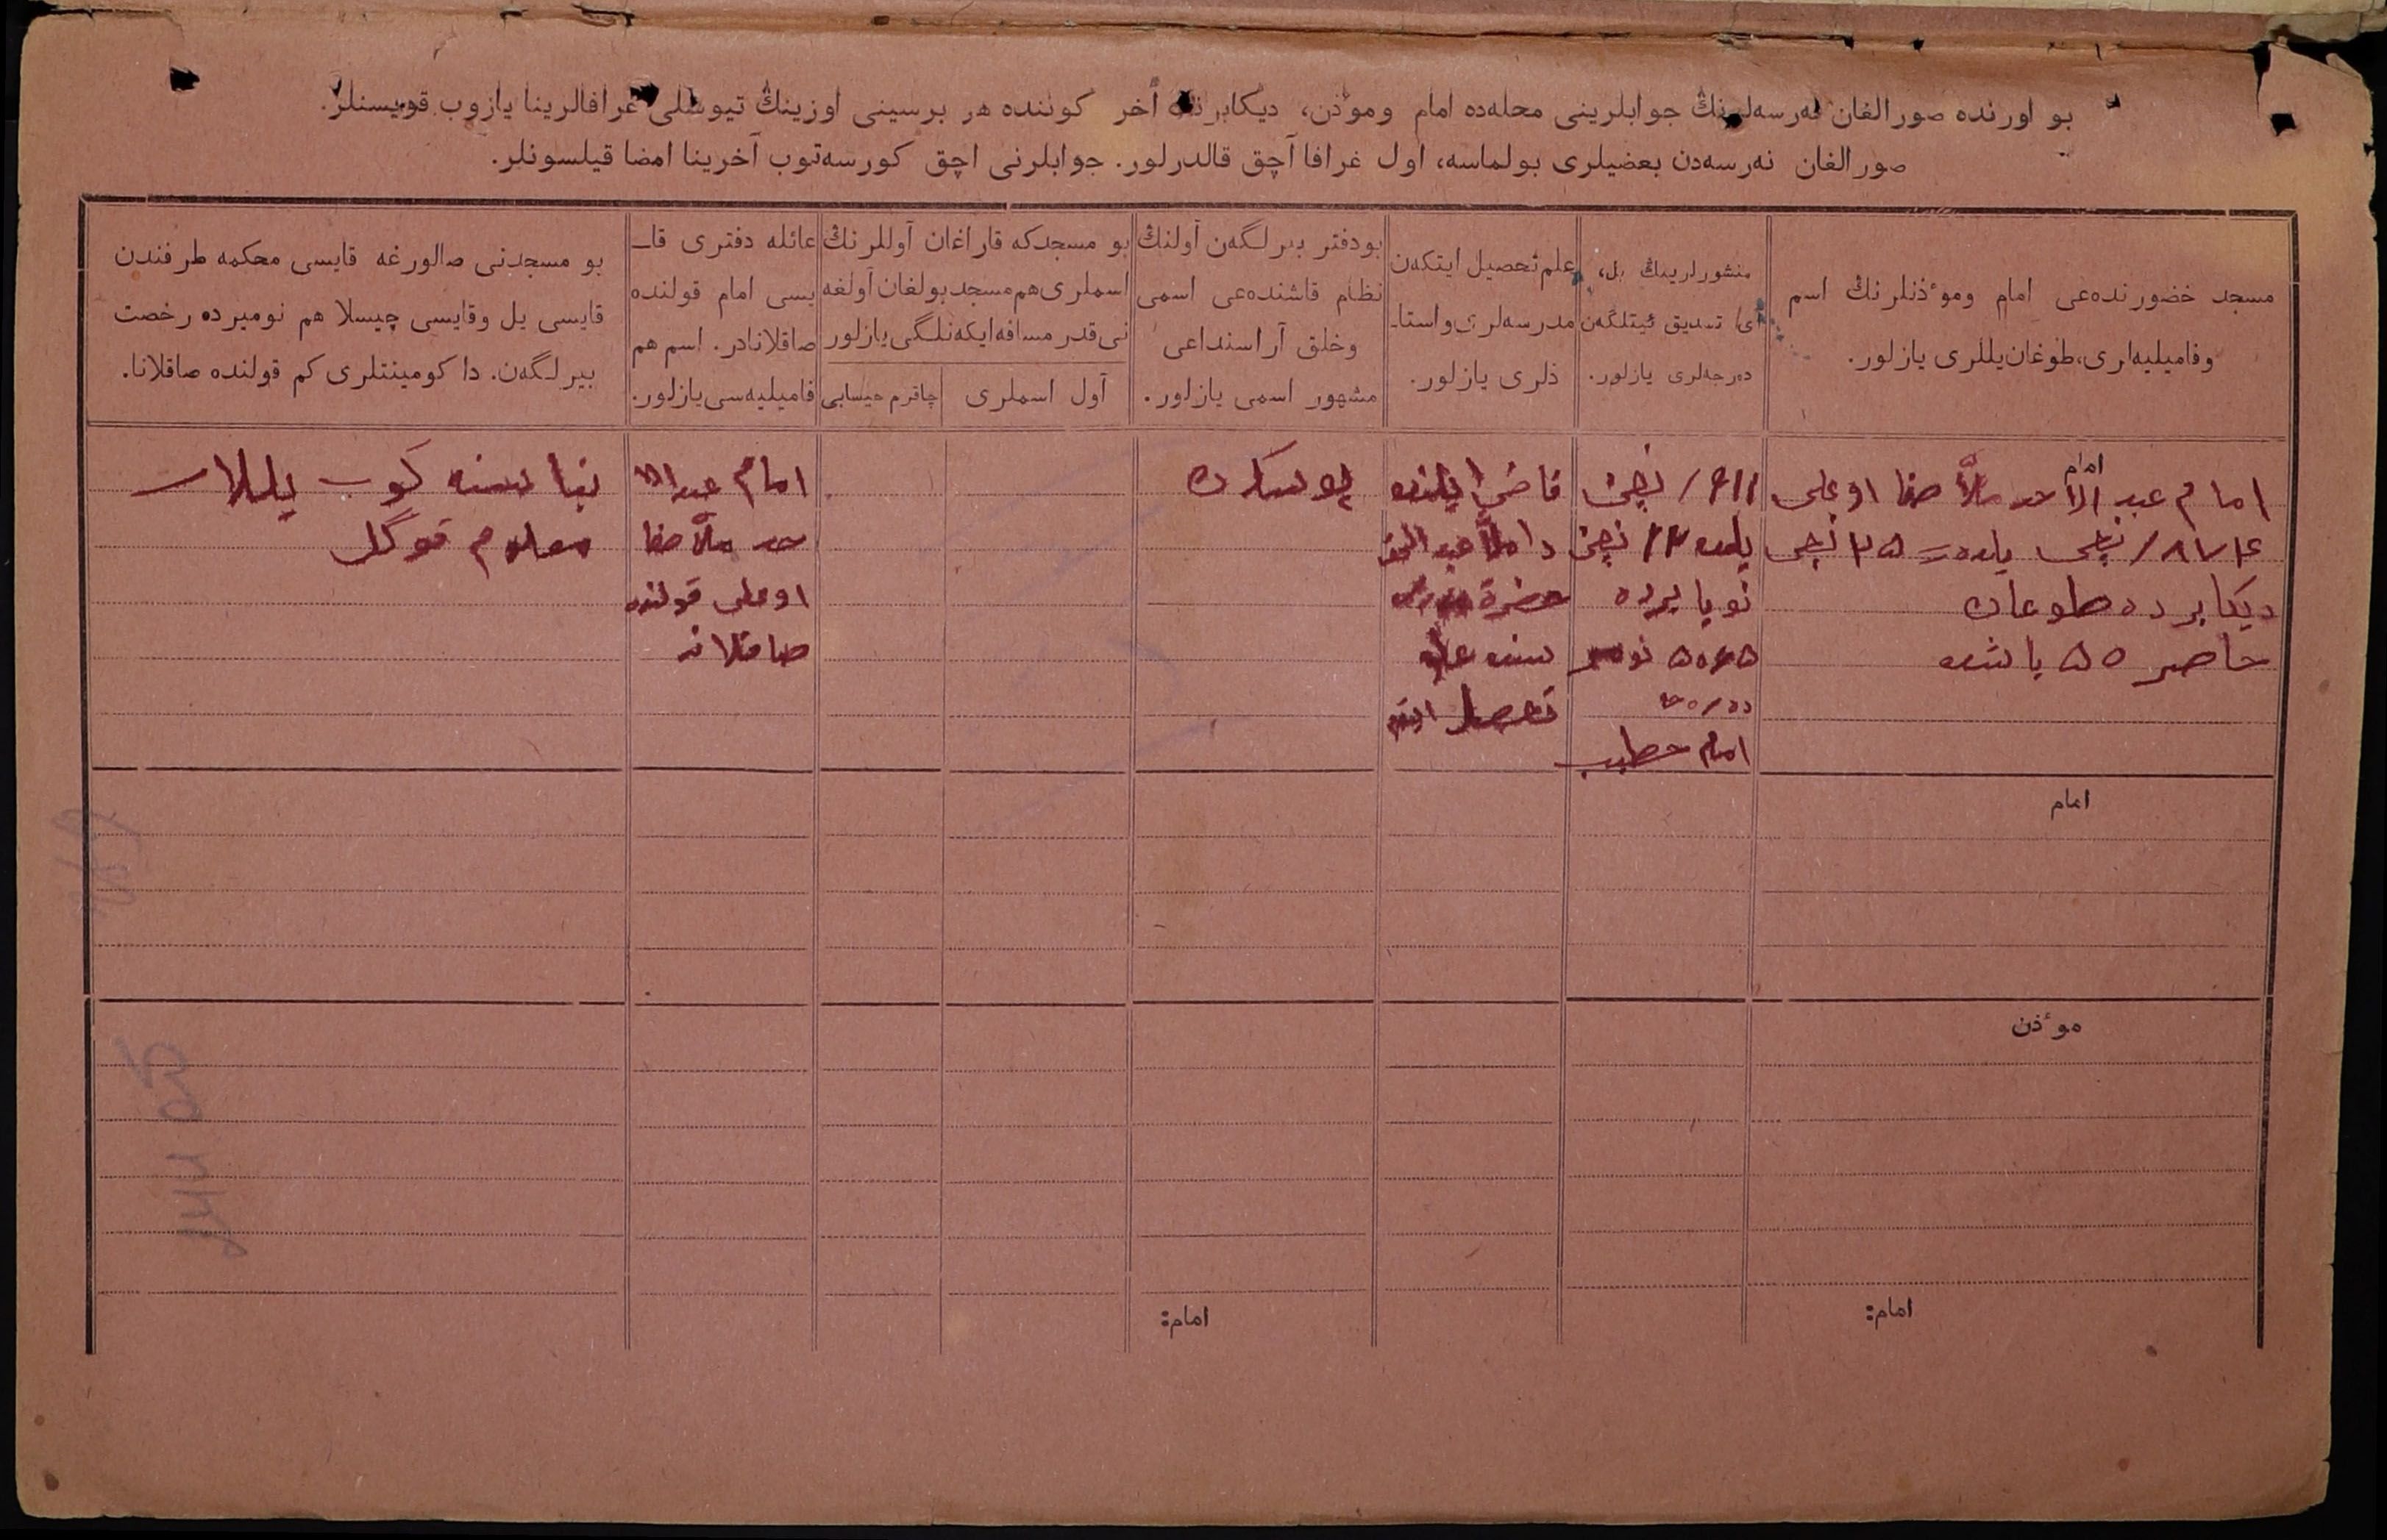 بو اورنده صورالغان نەرسەلرنڭ جوابلرینی محلەده امام وموٴذن، دیکابرنڭ اٰخر کوننده هر برسینی اوزینڭ تیوشلی غرافالرینا یازوب قویسنلر.
صورالغان نەرسەدن بعضیلری بولماسه، اول غرافا آچق قالدرلور. جوابلرنی اچق کورسەتوب آخرینا امضا قیلسونلر.
مسجد خضورندەعی امام وموٴذنلرنڭ اسم
وفامیلیەلری،طوغان یللری یازلور.
منشورلرینڭ یل،
آی تسدیق ئیتلگەن
دەرجەلری یازلور.
علم تحصیل ایتکەن
مدرسەلری واستا-
ذلری یازلور.
بو دفتر بیرلگەن آولنڭ
نظام قاشندەعی اسمی
وخلق آراسنداعی
مشهور اسمی یازلور.
بو مسجدکه قاراغان آوللرنڭ
اسملری هم مسجد بولغان آولغه
نی قدر مسافه ایکەنلگی یازلور
آول اسملری
چاقرم حیسابی
عائله دفتری قا-
یسی امام قولنده
صاقلانادر. اسم هم
فامیلیەسی یازلور.
بو مسجدنی صالورغه قایسی محکمه طرفندن
قایسی یل وقایسی چیسلا هم نومیرده رخصت
بیرلگەن. داکومینتلری کم قولنده صاقلانا.
امام
امام عبد الاحد ملاّ صفا اوغلی
۱۸۷۴ نچی یلده ۲۵ نچی
دیکابرده طوغان
حاضر ۵۵ یاشده
۱۹۱۱ نچی
یلده ۱۲ نچی
نویابرده
نومیر
امام خطیب
قاضی یلنده
داملاّ عبد
حضرة
تحصیل
امام عبدالا
حد ملاّ صفا
اوغلی قولنده
صاقلانه
بنا سنه کوب یللار
معلوم توگل
امام
موٴذن
امام:
امام: